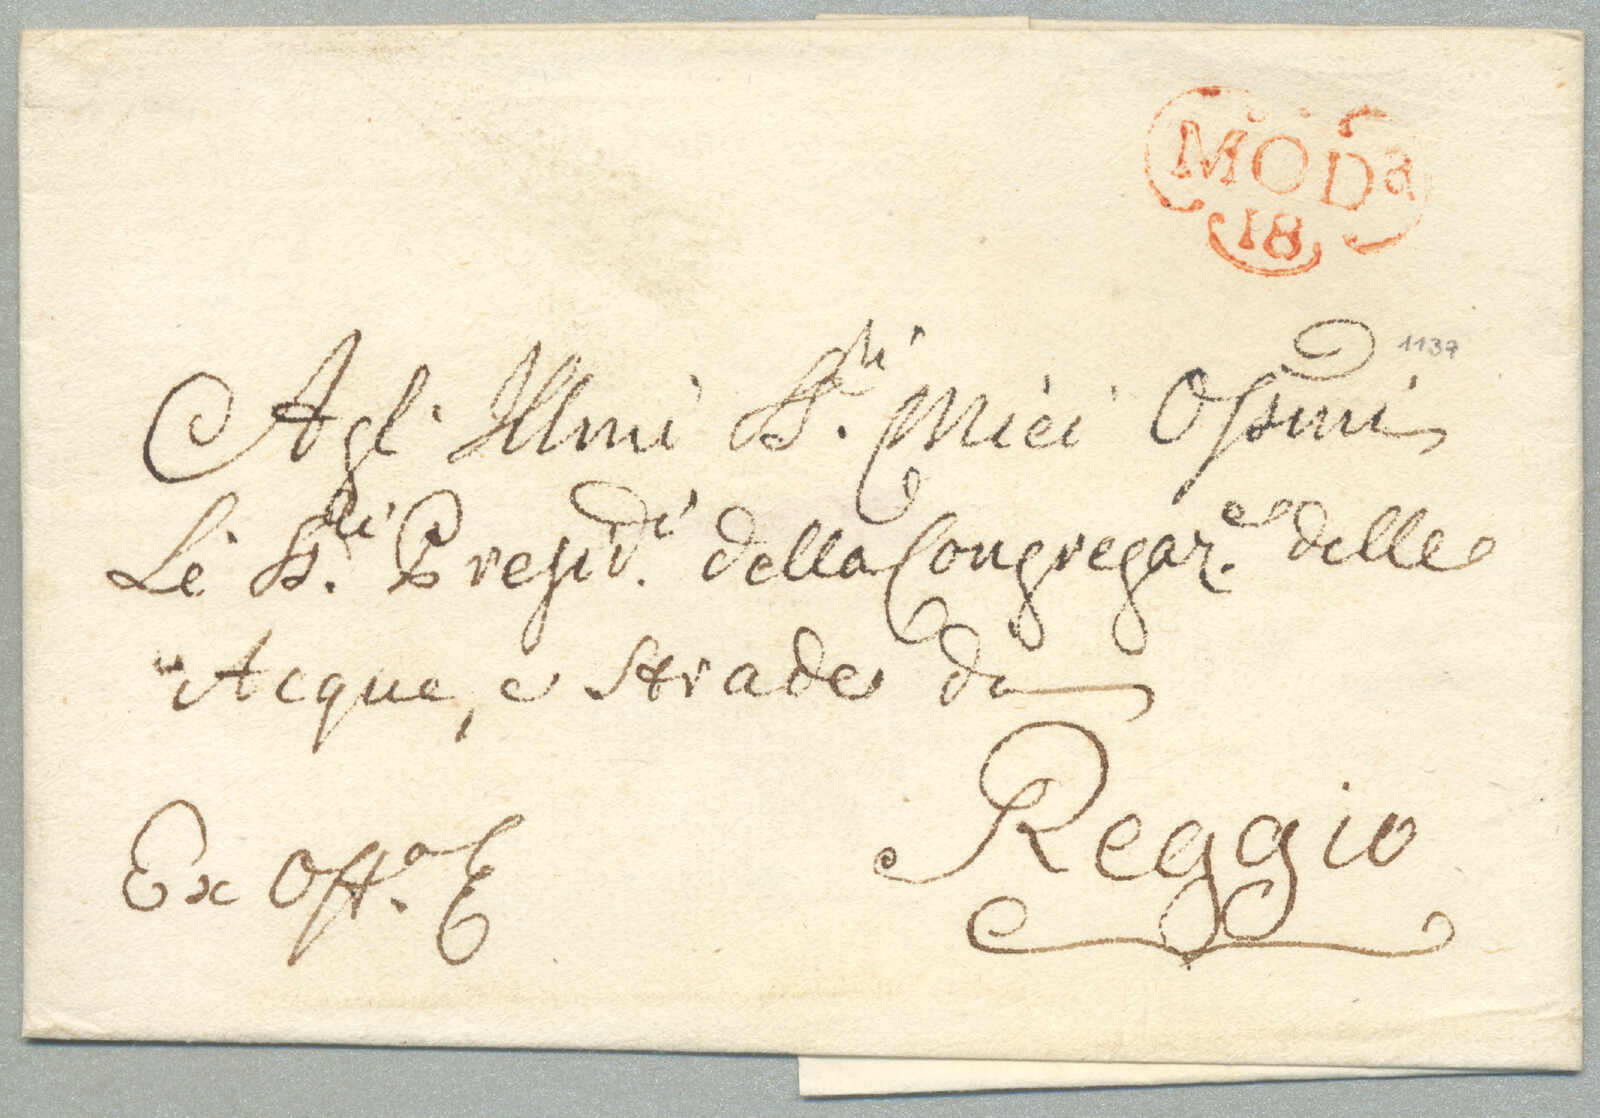 MODa
18
1137
Agl' Illmi Sri. Miei Ossmi
Li Sri. Presidi. della Congregaz.e delle
Acque, e Strade di
Reggio
Ex Offo.